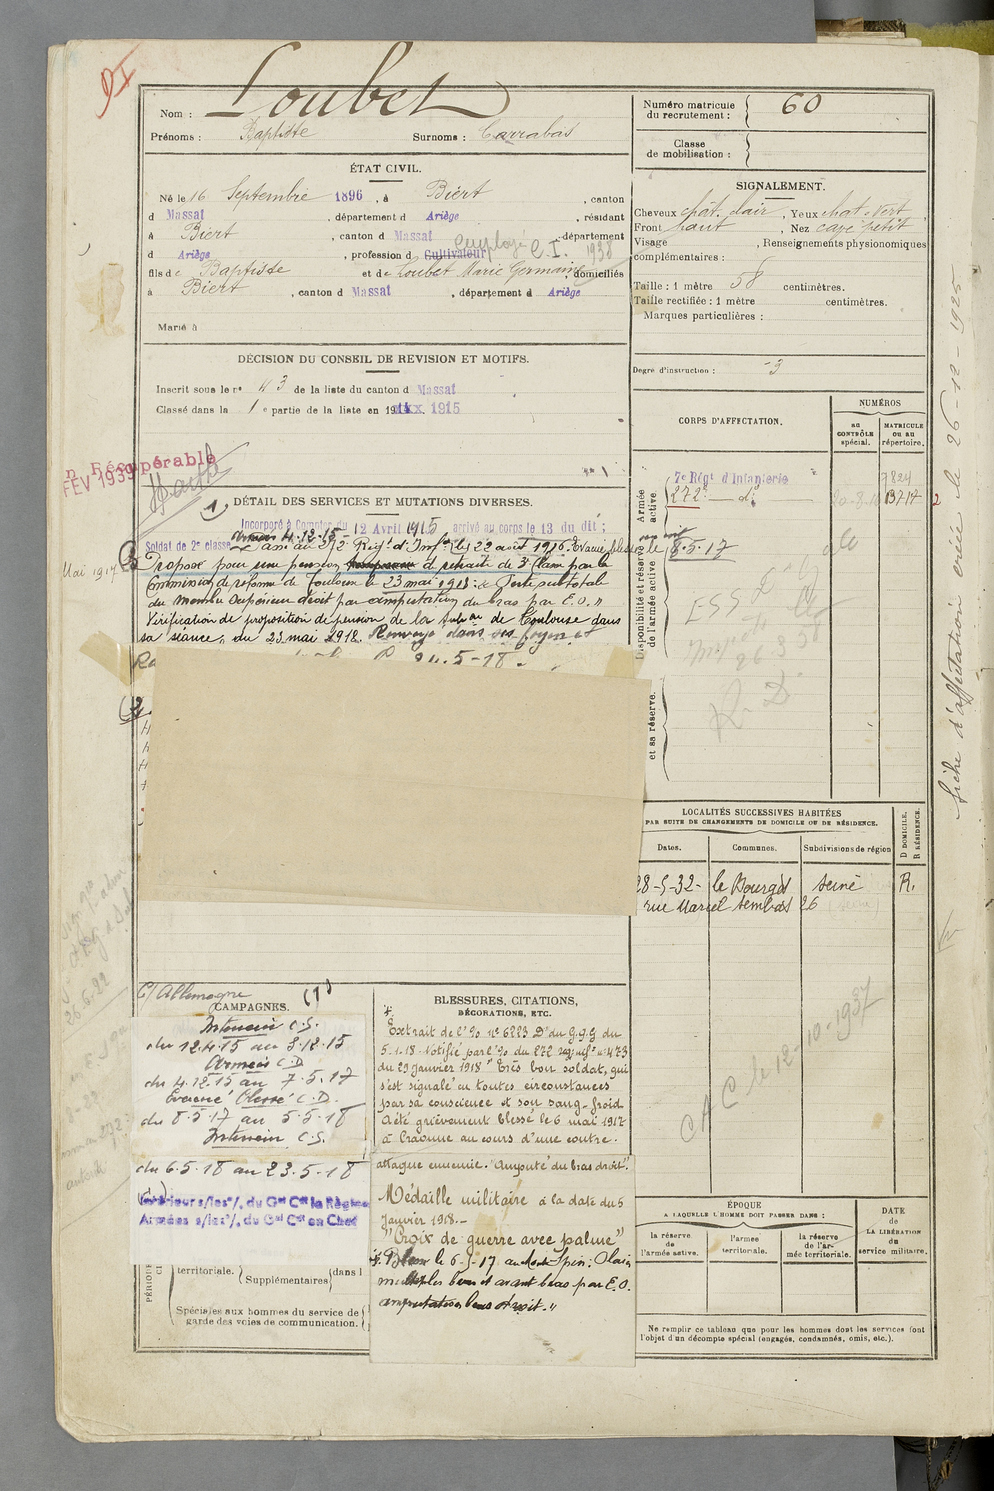 Nom : Loubet
Prénoms : Baptiste Surnoms : Carrabas
Numéro matricule du recrutement : 60
Classe de mobilisation :
ÉTAT CIVIL.
Né le 16 Septembre 1896, à Biert, canton
d Massat, département d Ariège, résidant
à Biert, canton d Massat, département
d Ariège, profession d Cultivateur employé C.I. 1938
fils de Baptiste et de Loubet Marie Germaine domiciliés
à Biert, canton d Massat, département d Ariège
Marié à
SIGNALEMENT.
Cheveux chât. clair, Yeux chat. vert,
Front haut, Nez cavé petit
Visage , Renseignements physionomiques
complémentaires :
Taille : 1 mètre 58 centimètres.
Taille rectifiée : 1 mètre centimètres.
Marques particulières :
Degré d'instruction : 3
DÉCISION DU CONSEIL DE REVISION ET MOTIFS.
Inscrit sous le n° 43 de la liste du canton d Massat
Classé dans la 1e partie de la liste en 191 1915
Récupérable
FEV 1939
DÉTAIL DES SERVICES ET MUTATIONS DIVERSES.
Incorporé à Compter du 12 Avril 1915 arrivé au corps le 13 du dit ;
Soldat de 2e classe
4-12-15
Passé au 272 Régt d'Infie le 22 août 1916. Evacué blessé le 8.5.17
Mai 1917
Proposé pour une pension de retraite de 3e classe par la
Commission de réforme de Toulouse le 23 mai 1918 : Perte subtotal
du membre supérieur droit par amputation du bras par E.O."
Vérification de proposition de pension de la de Toulouse dans
sa séance, du 23 mai 1918. Renvoyé dans ses foyers
24.5-18.
CORPS D'AFFECTATION.
NUMÉROS
au CONTRÔLE spécial.
MATRICULE OU AU répertoire.
Armée active.
7e Régt d'Infanterie
272e do
13717
Disponibilité et réserve de l'armée active
et sa réserve.
8.5.17
26 3 38
R. D.
fiche d'affectation créée le 26-12-1925
LOCALITÉS SUCCESSIVES HABITÉES
PAR SUITE DE CHANGEMENTS DE DOMICILE OU DE RÉSIDENCE.
Dates. Communes. Subdivisions de région
D DOMICILE. R RÉSIDENCE.
28-5-32- le Bourget Seine R.
rue Marcel Sembat 26 (Seine)
CAC le 12-10-1937
C/ Allemagne
CAMPAGNES.
Intérieur C.S.
du 12.4.15 au 3.12.15
Armées C.D
du 4.12.15 au 7.5.17
Evacué Blessé C.D.
du 8.5.17 au 5.5.18
Intérieur C.S.
du 6.5.18 au 23.5.18
Intérieur s/les o/. du Gal Ct la Région
Armées s/les o/. du Gal Ct en Chef
territoriale.
Supplémentaires dans l
Spéciales aux hommes du service de
garde des voies de communication.
BLESSURES, CITATIONS,
DÉCORATIONS, ETC.
Extrait de l'o no 6223 D du G.Q.G du
5.1.18 Notifié par l'o du 272 regt inf n° 473
du 29 janvier 1918 "Très bon soldat, qui
s'est signalé en toutes circonstances
par sa conscience et son sang-froid
a été grièvement blessé le 6 mai 1917
à Craonne au cours d'une contre-
attaque ennemie. "Amputé du bras droit".
Médaille militaire à la date du 5
Janvier 1918.-
"Croix de guerre avec palme"
Blessé le 6-5-17 au Mont Spin : Plaies
multiples bras et avant bras par E.O.
amputation bras droit."
ÉPOQUE
A LAQUELLE L'HOMME DOIT PASSER DANS :
la réserve de l'armée active.
l'armée territoriale.
la réserve de l'armée territoriale.
DATE de LA LIBÉRATION du service militaire.
Ne remplir ce tableau que pour les hommes dont les services font
l'objet d'un décompte spécial (engagés, condamnés, omis, etc.).